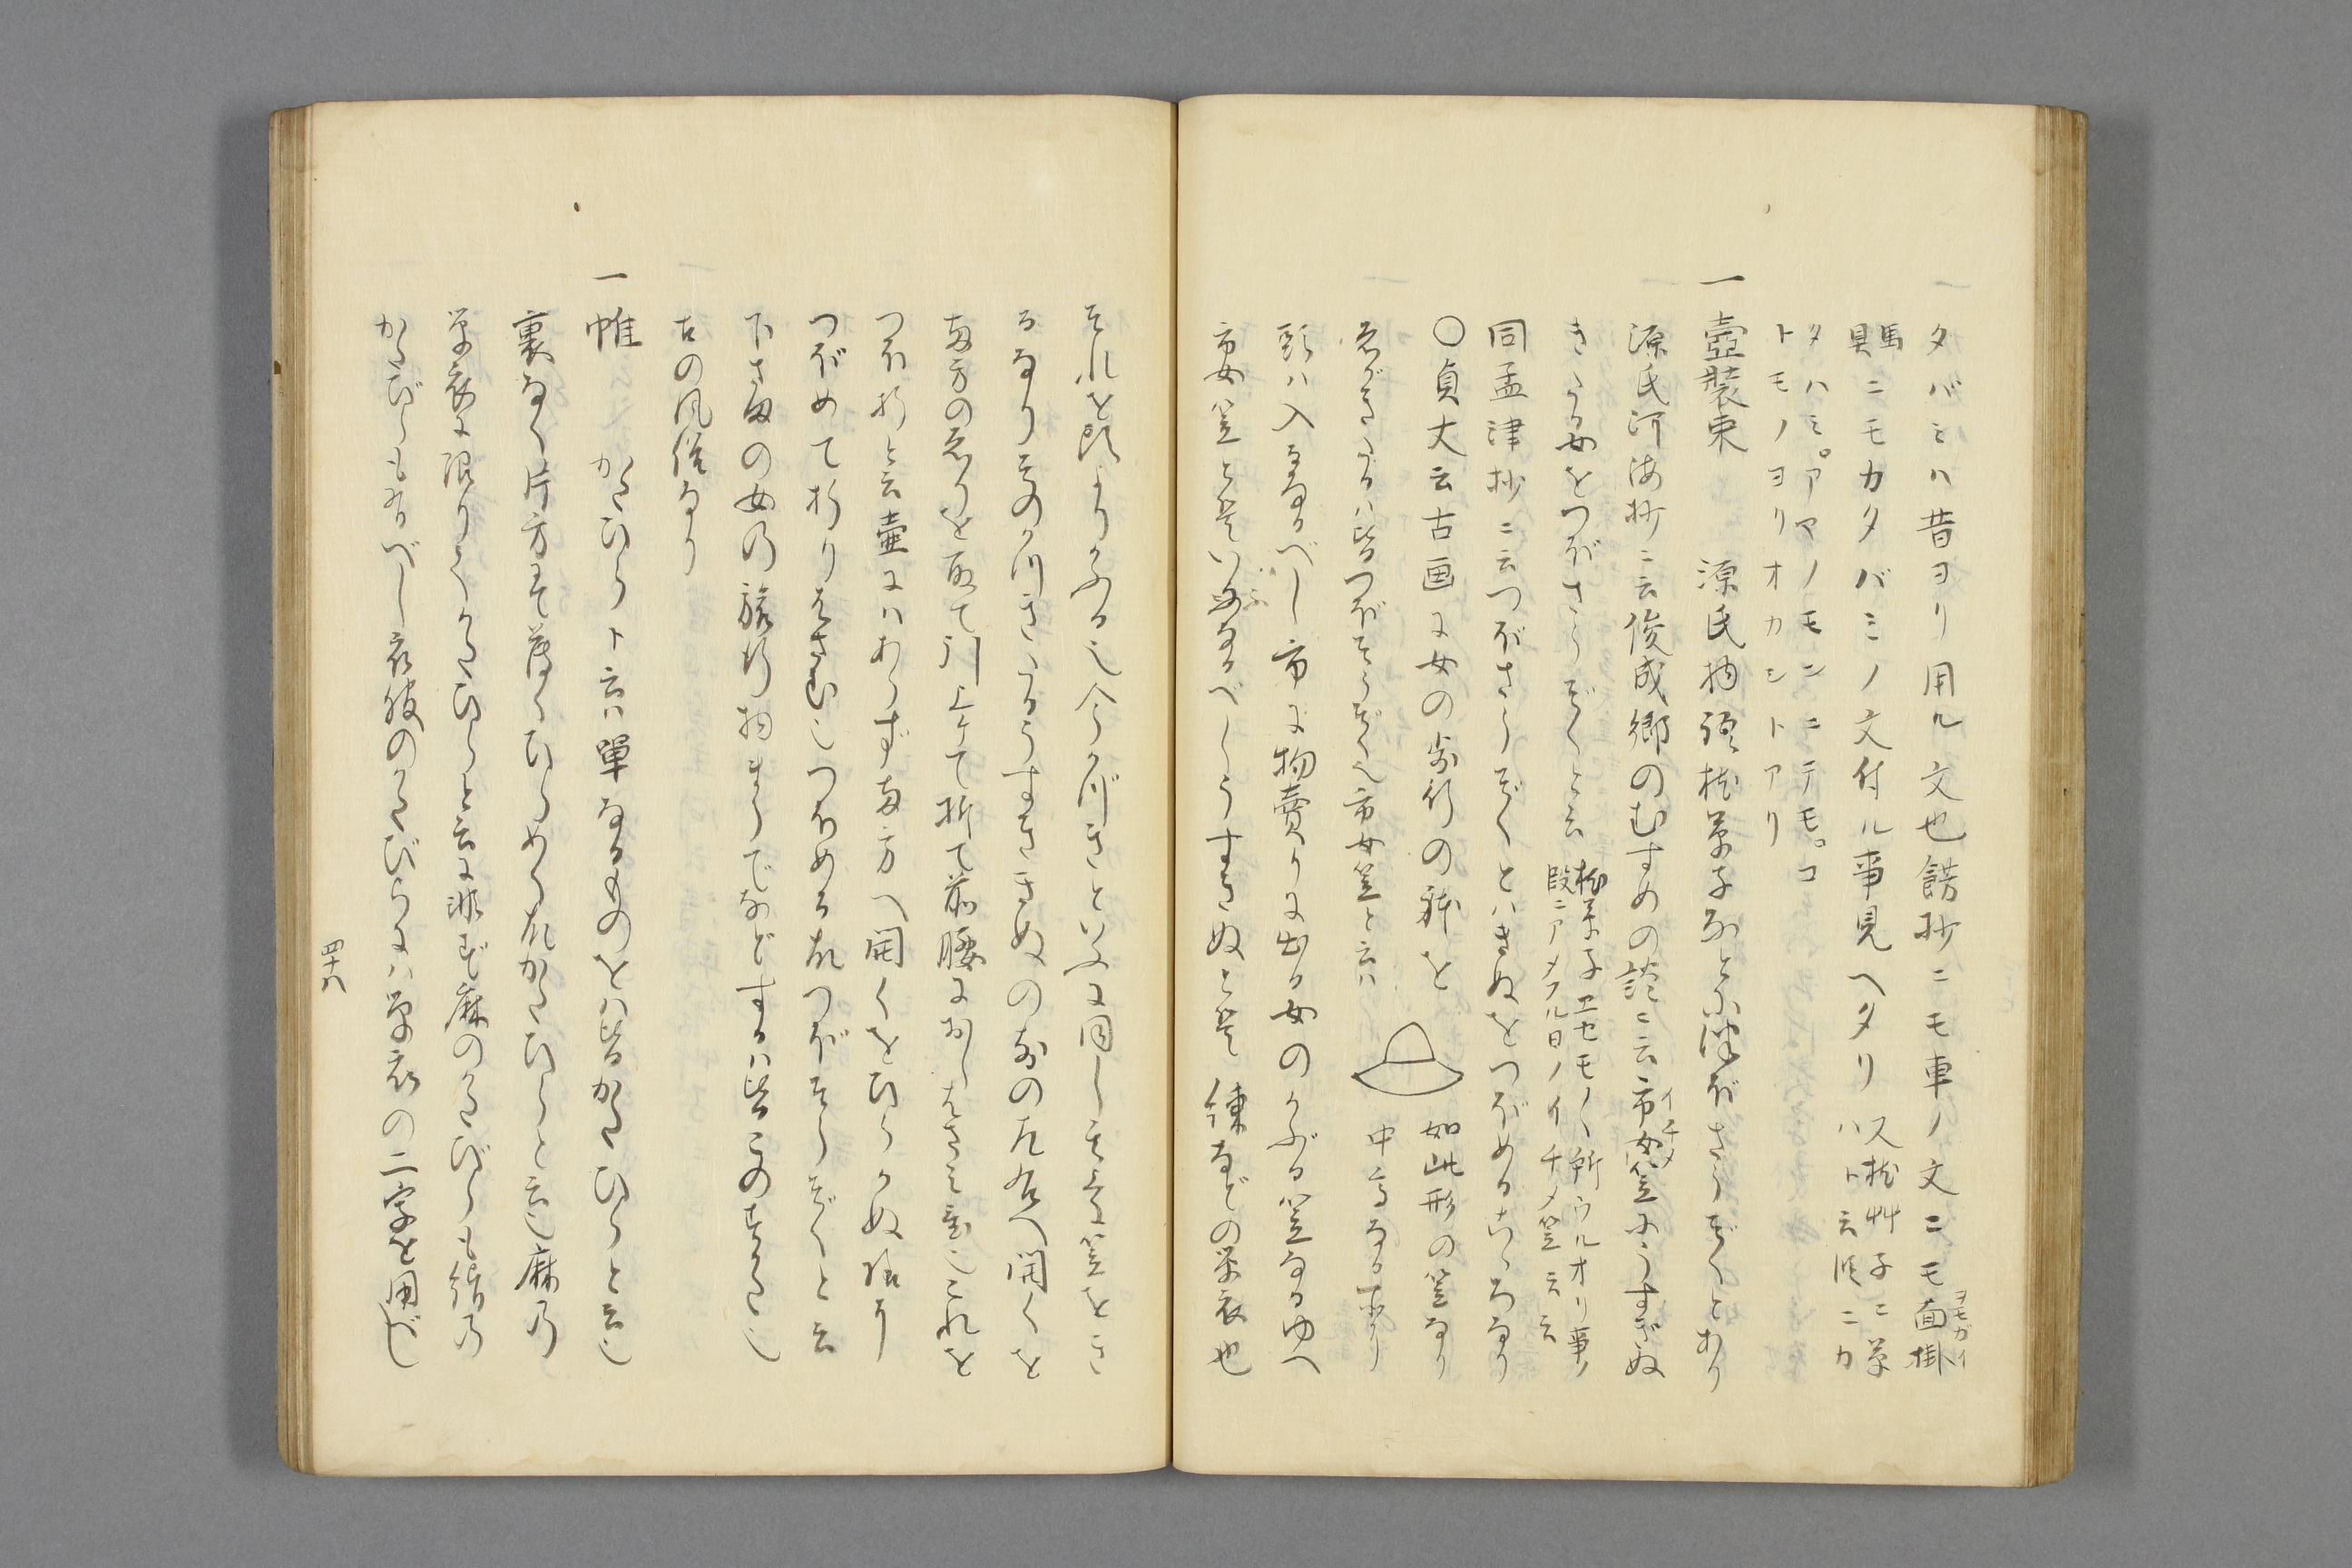 タバミハ昔ヨリ用ル文也餝抄ニモ車ノ文ニモ面掛
ヲモガイ
馬具ニモカタバミノ文付ル事見ヘタリ
又枕艸子ニ草
ハト云段ニカ
タハミ。アヤノモンニニテモ。コ
トモノヨリオカシトアリ
一 壺装束 源氏物語枕草子などに つぼさうぞくとあり
源氏河海抄ニ云俊成卿のむすめの談ニ云市女笠にうすぎぬ
イチメ
きたる女をつぼさうぞくと云
枕草子エセモノヽ所ウルオリ事ノ
段ニアメフル日ノイチメ笠云云
同孟津抄ニ云つぼさうぞくとハきぬをつぼめるこゝろなり
〇貞丈云古画に女の歩行の躰を 如此形の笠なり
ゑがきたるハ皆つぼさうぞく也市女笠と云ハ 中高なる
頭ハ入るなるべし市に物賣りに出る女のかぶる笠なるゆへ
市女笠と いふなるべしうすぎぬと 練などの單衣也
それを頭よりかふる也今かづきといふに同し其上に笠をき
るなりそのかづきたるうすぎぬの前の左右へ開くを
両方のゑりを取て引上げて折て前腰におしはさみ置也これを
つぼ折と云壺にハあらず両方へ開くをひらかぬ様ニ
つぼめて折りはさむ也つぼめる故つぼさうぞくと云
下ざまの女の旅行物まうでなどするハ皆この
古の風俗なり
一 帷 かたひらト云ハ單なるものをハ皆かたひらと云也
裏なく片方にて薄くひらめく故かたひらと云也麻の
單衣に限りてかたひらと云に非ず麻のかたびらも絹の
かたびらも有べし衣服のかたびらにハ單衣の二字を用べし
四十八